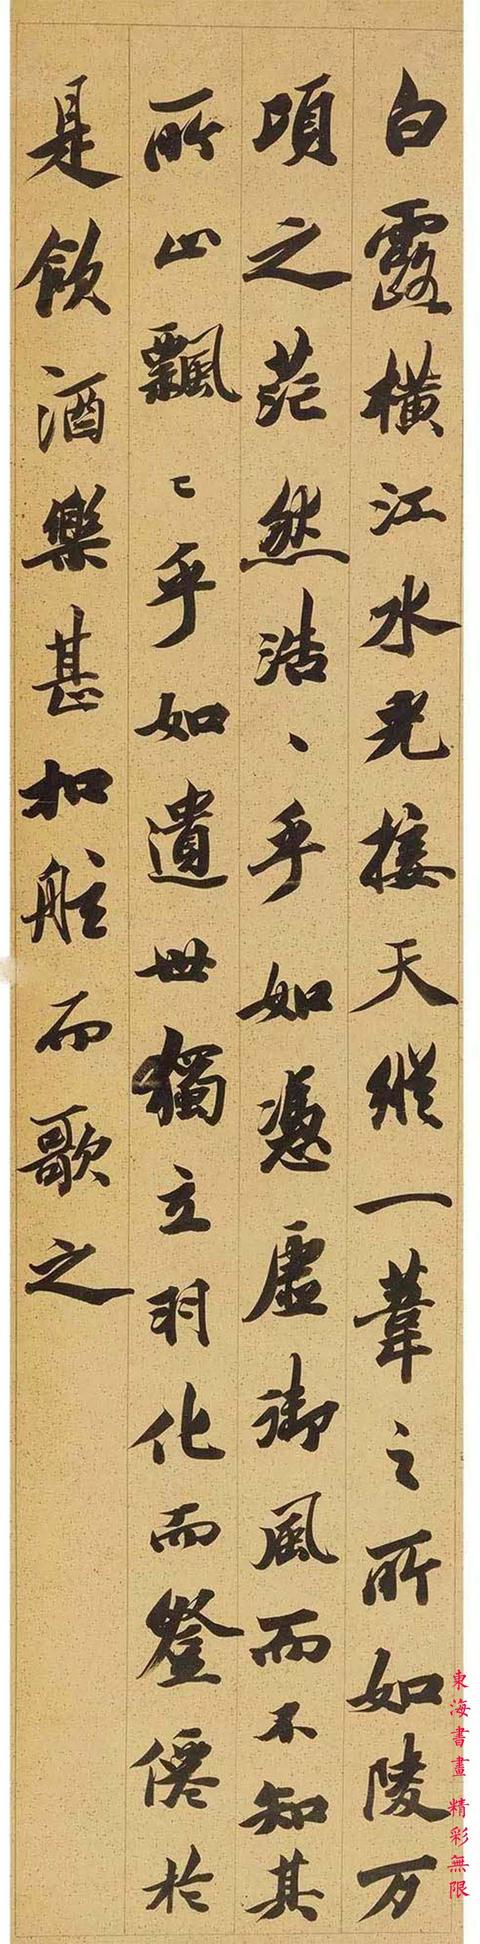 白露橫江水光接天縱一葦之所如陵万
頃之茫然浩、乎如憑虛御風而不知其
所止飄〻乎如遺世獨立羽化而登僊於
是飲酒樂甚扣舷而歌之
東海書畫 精彩無限